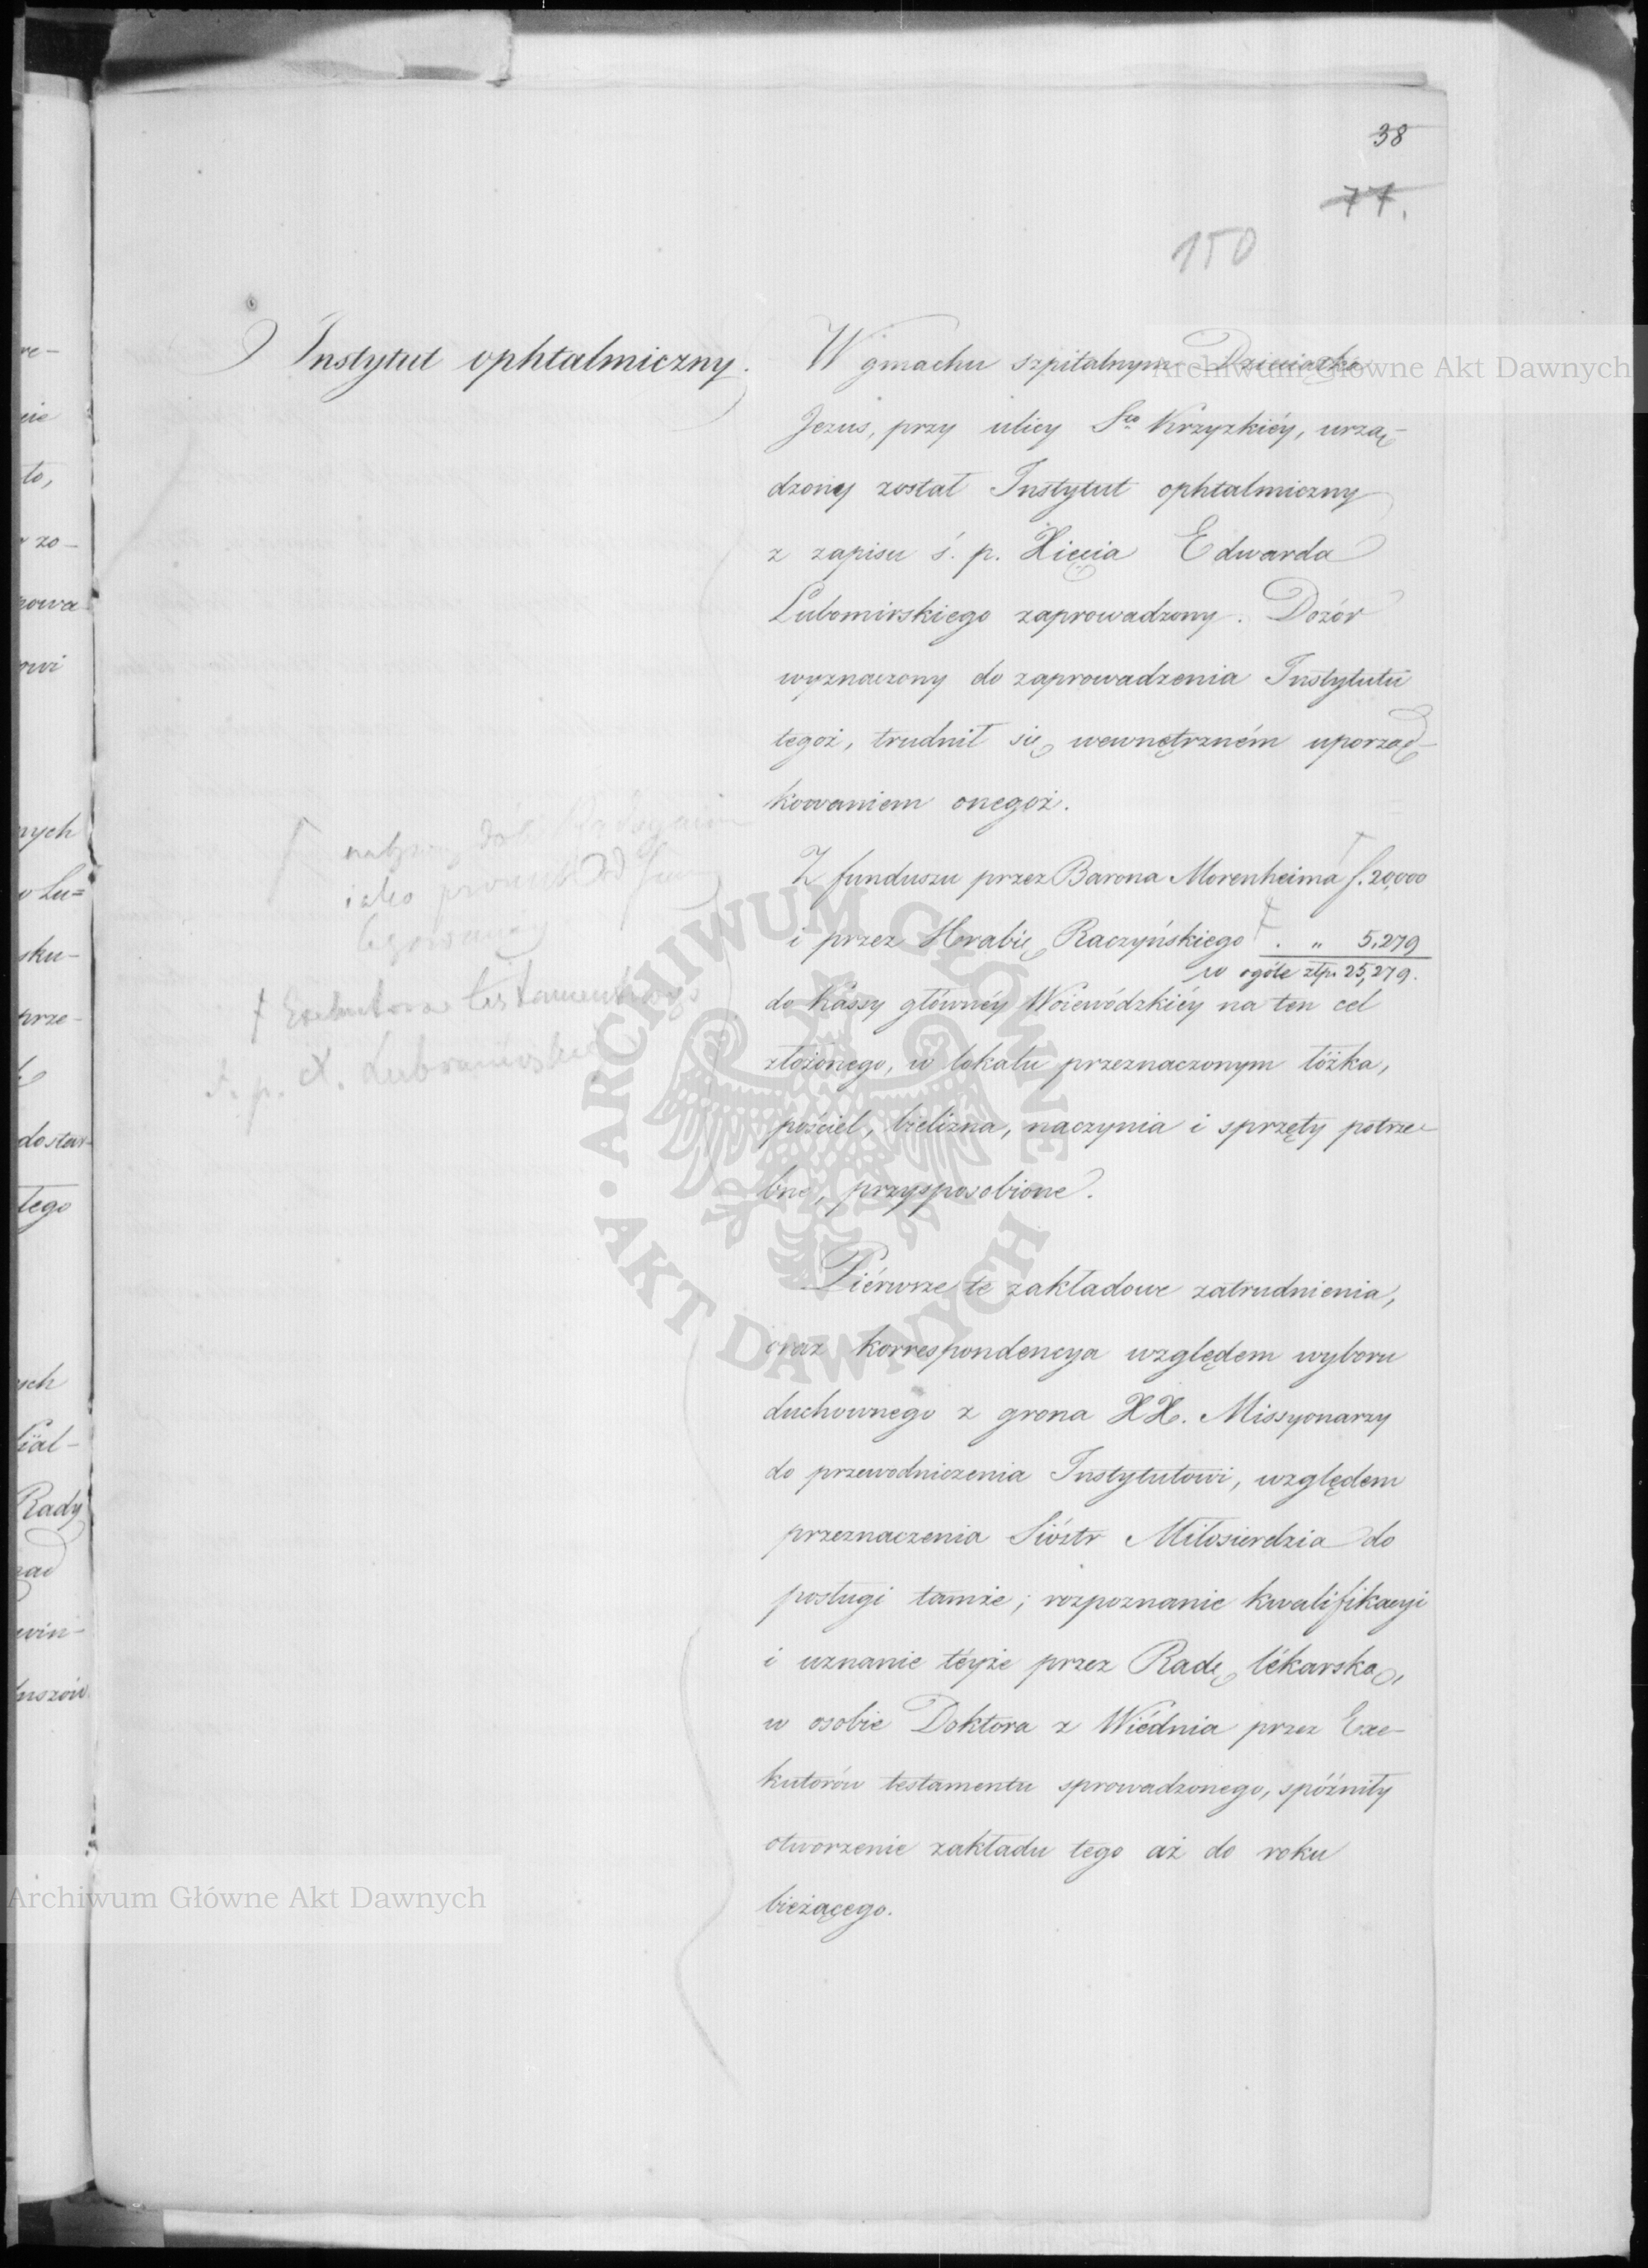 38
77.
150
Instytut ophtalmiczny.
W gmachu szpitalnym Dzieciątka
Jezus, przy ulicy Sto Krzyzkiéy, urzą-
dzony został Instytut ophtalmiczny
z zapisu ś. p. Xięcia Edwarda
Lubomirskiego zaprowadzony. Dozór
wyznaczony do zaprowadzenia Instytutu
tegoż, trudnił się wewnętrzném uporząd-
kowaniem onegoż.
Z funduszu przez Barona Morenheima f. 20,000
i przez Hrabię Raczyńskiego . „ 5,279
w ogóle złp. 25,279.
do Kassy głównéy Woiewódzkiéy na ten cel
złożonego, w lokalu przeznaczonym łóżka,
pościel, bielizna, naczynia i sprzęty potrze-
bne, przysposobione.
Piérwsze te zakładowe zatrudnienia,
oraz korrespondencya względem wyboru
duchownego z grona XX. Missyonarzy
do przewodniczenia Instytutowi, względem
przeznaczenia Sióstr Miłosierdzia do
posługi tamże; rozpoznanie kwalifikacyi
i uznanie téyże przez Radę lékarską,
w osobie Doktora z Wiédnia przez Exe-
kutorów testamentu sprowadzonego, spóźniły
otworzenie zakładu tego aż do roku
bieżącego.
iako procent od
legowanéy
† Exekutora testamentowego
ś. p. X.
re-
nie
to,
zo-
nowa
owi
nych
w Lu=
sku-
prze-
dostar-
tego
ych
Rady
nad
win-
Archiwum Główne Akt Dawnych
ARCHIWUM GŁÓWNE AKT DAWNYCH
Archiwum Główne Akt Dawnych